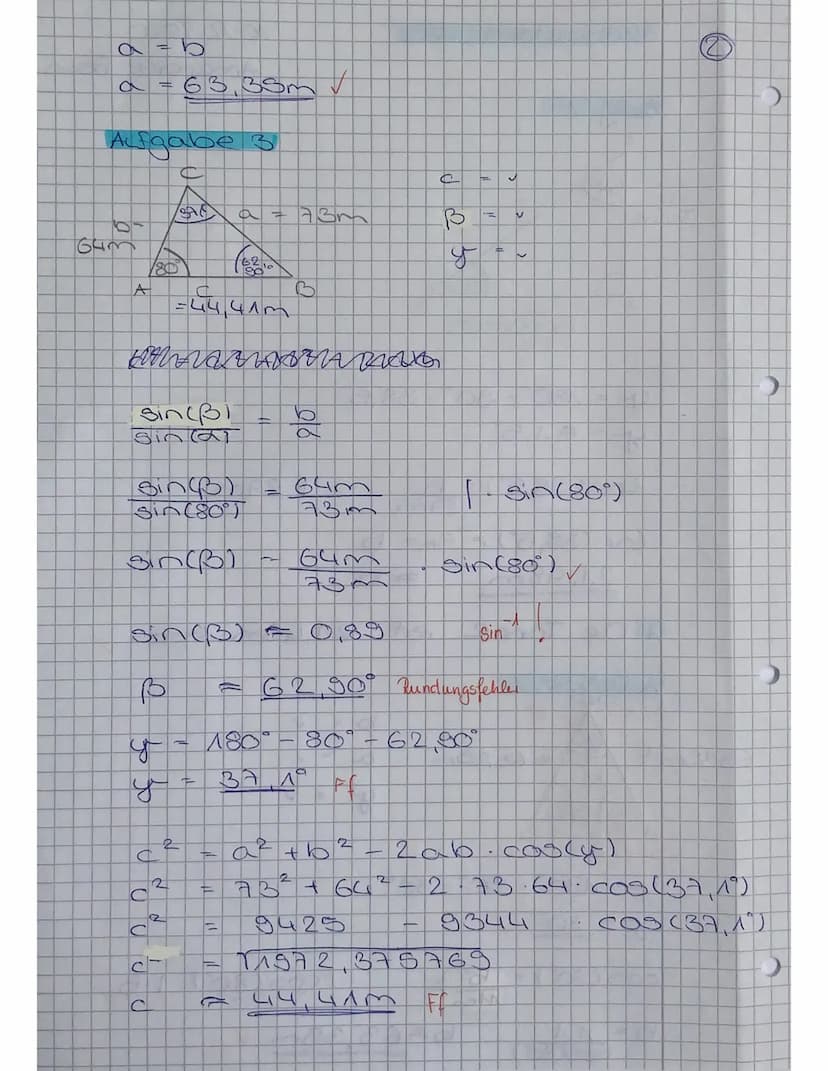 ②
a = b
a = 63,39m ✓
Aufgabe 3
C
c = ✓
97,1°
a = 73m
β = ✓
b =
64m
γ = ✓
80°
62,90°
A
c
B
= 44,41m
sin(β) / sin(α) = b / a
sin(β) / sin(80°) = 64m / 73m | · sin(80°)
sin(β) = 64m / 73m · sin(80°) ✓
sin(β) ≈ 0,89 sin⁻¹ !
β = 62,90° Rundungsfehler
γ = 180° - 80° - 62,90°
γ = 37,1° Ff
c² = a² + b² - 2ab · cos(γ)
c² = 73² + 64² - 2 · 73 · 64 · cos(37,1°)
c² = 9425 - 9344 · cos(37,1°)
c = √1972,375769
c ≈ 44,41m Ff